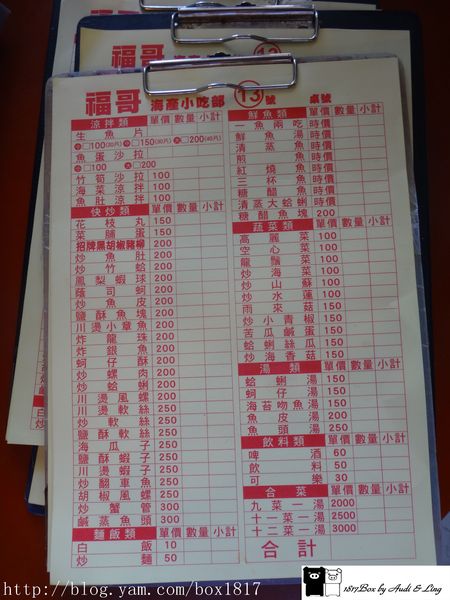 福哥 海產小吃部 13號 桌號
涼拌類 單價 數量 小計
生魚片
小□100(20片) 中□150(30片) 大□200(40片)
魚蛋沙拉
小□100 大□200
竹筍沙拉 100
海菜涼拌 100
魚肚涼拌 100
快炒類 單價 數量 小計
花枝丸 150
菜脯蛋 150
招牌黑胡椒豬柳 200
炒魚肚 200
炒竹蛤 200
鳳梨蝦球 200
蔭司蚵 200
炒魚皮 200
鹽酥魚塊 200
川燙小章魚 200
炸龍珠 200
炸銀魚 200
蚵仔酥 200
炒螺肉 200
炒蛤蜊 200
川燙風螺 200
川燙軟絲 250
炒軟絲 250
鹽酥軟絲 250
海瓜子 250
鹽酥蝦子 250
川燙蝦子 250
炒翻車魚 250
胡椒風螺 250
炒蟹管 300
鹹蒸魚頭 300
麵飯類 單價 數量 小計
白飯 10
炒麵 50
鮮魚類 單價 數量 小計
一魚兩吃 時價
鮮魚湯 時價
清蒸魚 時價
煎魚 時價
紅燒魚 時價
三杯魚 時價
糖醋魚 時價
清蒸大蛤蜊 時價
糖醋魚塊 200
蔬菜類 單價 數量 小計
高麗菜 100
空心菜 100
龍鬚菜 100
炒海菜 100
炒山蘇 100
炒水蓮 100
雨來菇 150
炒小青椒 150
苦瓜鹹蛋 150
蛤蜊絲瓜 150
炒海香菇 150
湯類 單價 數量 小計
蛤蜊湯 150
蚵仔湯 150
海苔吻魚湯 150
魚皮湯 200
魚頭湯 250
飲料類 單價 數量 小計
啤酒 60
飲料 50
可樂 30
合菜 單價 數量 小計
九菜一湯 2000
十一菜一湯 2500
十二菜一湯 3000
合計
http://blog.yam.com/box1817
1817Box by Audi & Ling